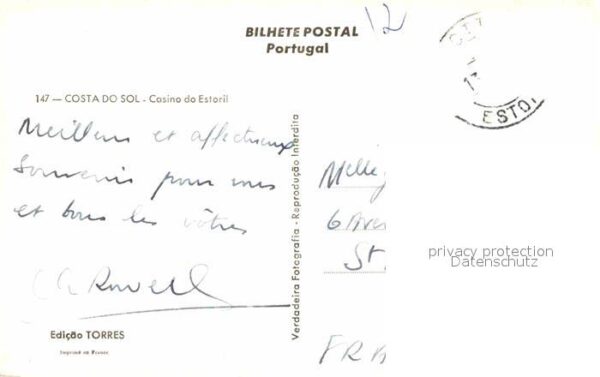 BILHETE POSTAL
Portugal
12
147 — COSTA DO SOL - Casino do Estoril
Meilleurs et affectueux
Souvenirs pour vous
et tous les vôtres
Edição TORRES
Imprimé en France
Verdadeira Fotografia - Reprodução Interdita
Melle
6 Aver
St
FRA
ESTO
privacy protection
Datenschutz